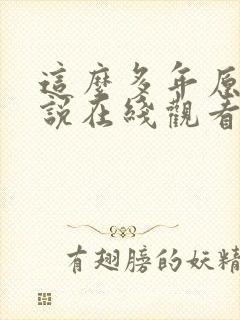 這麼多年原
說在綫觀看
有翅膀的妖精